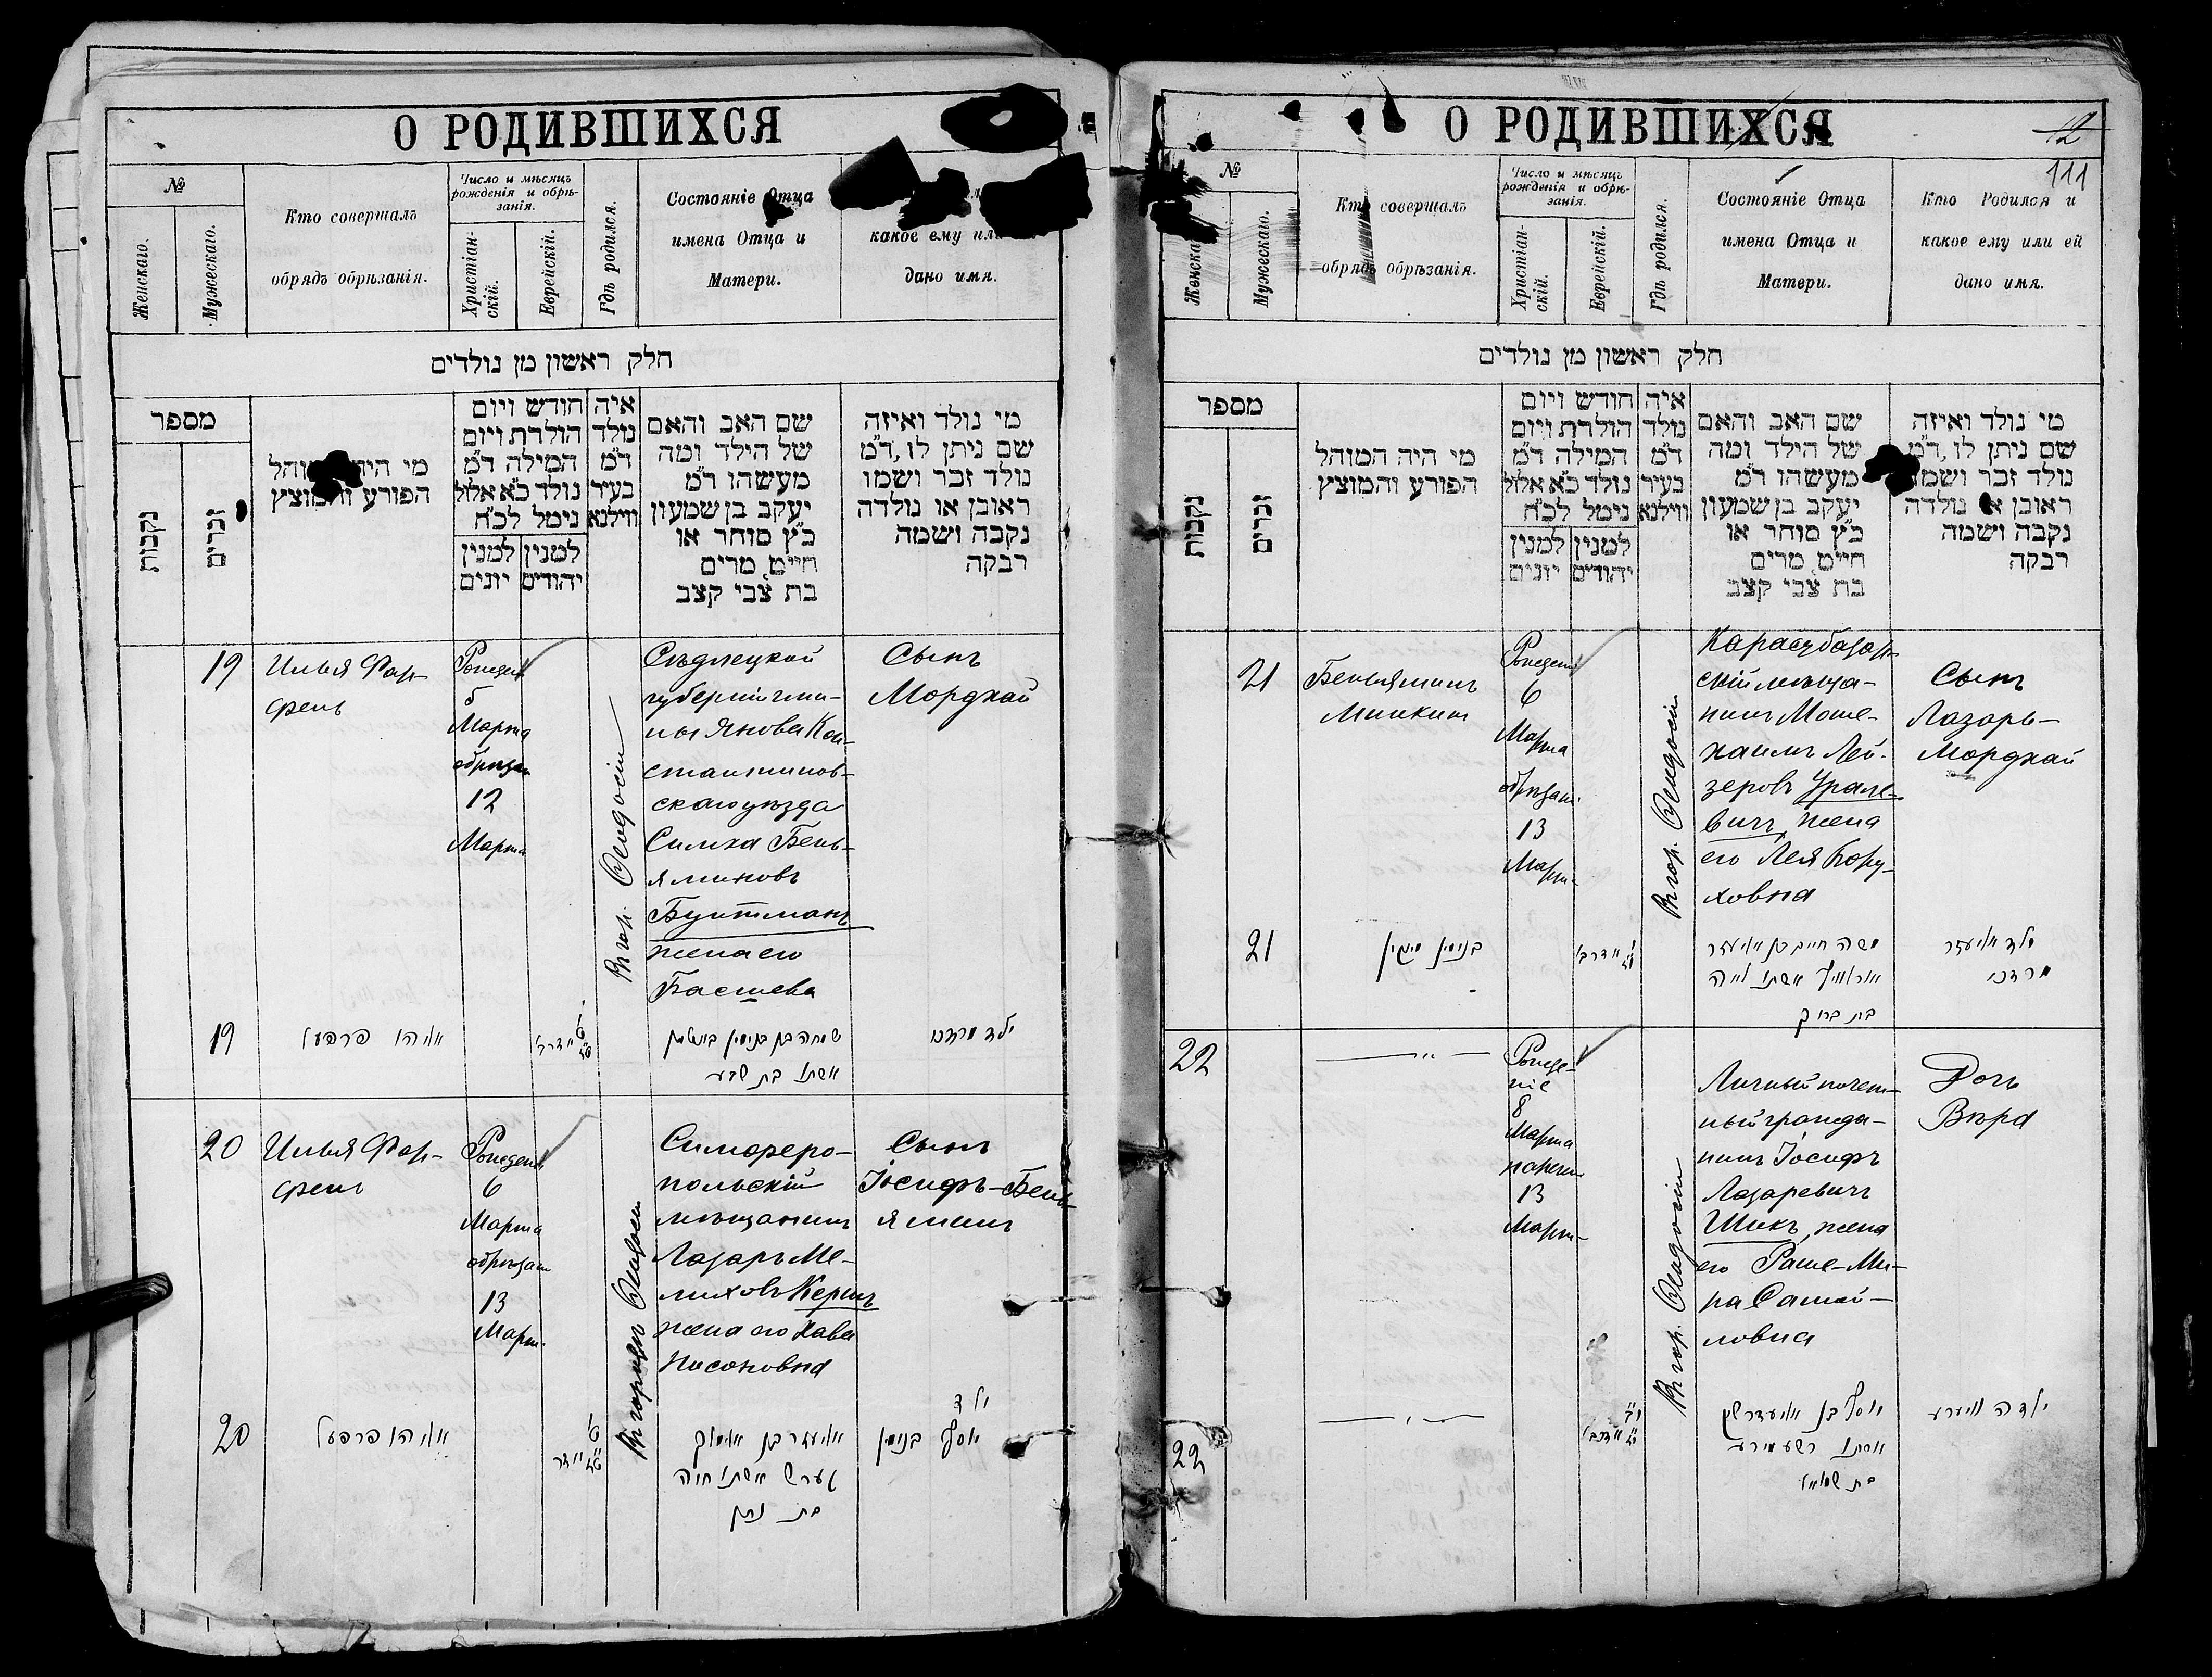 О РОДИВШИХСЯ
№
Женскаго.
Мужескаго.
Кто совершалъ
обрядъ обрѣзанія.
Число и мѣсяцъ
рожденія и обрѣ-
занія.
Христіан-
скій.
Еврейскій.
Гдѣ родился.
Состояніе Отца
имена Отца и
Матери.
какое ему или
дано имя.
חלק ראשון מן נולדים
מספר
נקבות
זכרים
מי היה המוהל
הפורע והמוצץ
חודש ויום
הולדת ויום
המילה ד״מ
נולד כ״א אלול
נימל לכ״ח
למנין למנין
יהודים יונים
איה
נולד
ד״מ
בעיר
ווילנא
שם האב והאם
של הילד ומה
מעשהו ד״מ
יעקב בן שמעון
כ״ץ סוחר או
חייט מרים
בת צבי קצב
מי נולד ואיזה
שם ניתן לו, ד״מ
נולד זכר ושמו
ראובן או נולדה
נקבה ושמה
רבקה
19
Илья Фар-
фель
Рожден
5
Марта
обрѣзан
12
Марта
В гор. Ѳеодосіи
Сѣдлецкой
губерніи гми-
ны Янова Кон-
стантинов-
скаго уѣзда
Симха Бень-
яминовъ
Бунтманъ
жена его
Басшева
Сынъ
Мордхай
19
אליהו פרפעל
שמחה בן בנימין בונטמן
אשתו בת שבע
ילד מרדכי
20
Илья Фар-
фель
Рожден
6
Марта
обрѣзан
13
Март.
В городѣ Ѳеодосіи
Симферо-
польскій
мѣщанинъ
Лазарь Ме-
лиховъ Кершъ
жена его Хава
Насоновна
Сынъ
Іосифъ-Бень
яминъ
20
אליהו פרפעל
אליעזר בן
קערש אשתו חוה
בת נתן
ילד
יוסף בנימין
О РОДИВШИХСЯ
12
111
№
Женска
Мужескаго.
Кто совершалъ
обрядъ обрѣзанія.
Число и мѣсяцъ
рожденія и обрѣ-
занія.
Христіан-
скій.
Еврейскій.
Гдѣ родился.
Состояніе Отца
имена Отца и
Матери.
Кто Родился и
какое ему или ей
дано имя.
חלק ראשון מן נולדים
מספר
נקבות
זכרים
מי היה המוהל
הפורע והמוצץ
חודש ויום
הולדת ויום
המילה ד״מ
נולד כ״א אלול
נימל לכ״ח
למנין למנין
יהודים יונים
איה
נולד
ד״מ
בעיר
ווילנא
שם האב והאם
של הילד ומה
מעשהו ד״מ
יעקב בן שמעון
כ״ץ סוחר או
חייט מרים
בת צבי קצב
מי נולד ואיזה
שם ניתן לו, ד״מ
נולד זכר ושמו
ראובן או נולדה
נקבה ושמה
רבקה
21
Беньяминъ
Минкин
Рожден
6
Марта
обрѣзан.
13
Март-
В гор. Ѳеодосіи
Карасубазар-
скій мѣща-
нинъ Моше-
хаимъ Лей-
зеровъ Урале-
вичъ, жена
его Лея Бору-
ховна
Сынъ
Лазарь-
Мордхай
21
בנימין מינקין
משה חיים בן אליעזר
אוראלוויץ אשתו לאה
בת ברוך
ילד אליעזר
מרדכי
22
Рожде-
ніе
8
Марта
наречен
13
Март-
В гор. Ѳеодосіи
Личный почет-
ный гражда-
нинъ Іосифъ
Лазаревичъ
Шикъ, жена
его Раше-Ми-
ра Самой-
ловна
Дочь
Вѣра
22
יוסף בן אליעזר שיק
אשתו רשע מירע
בת שמואל
ילדה ווערע